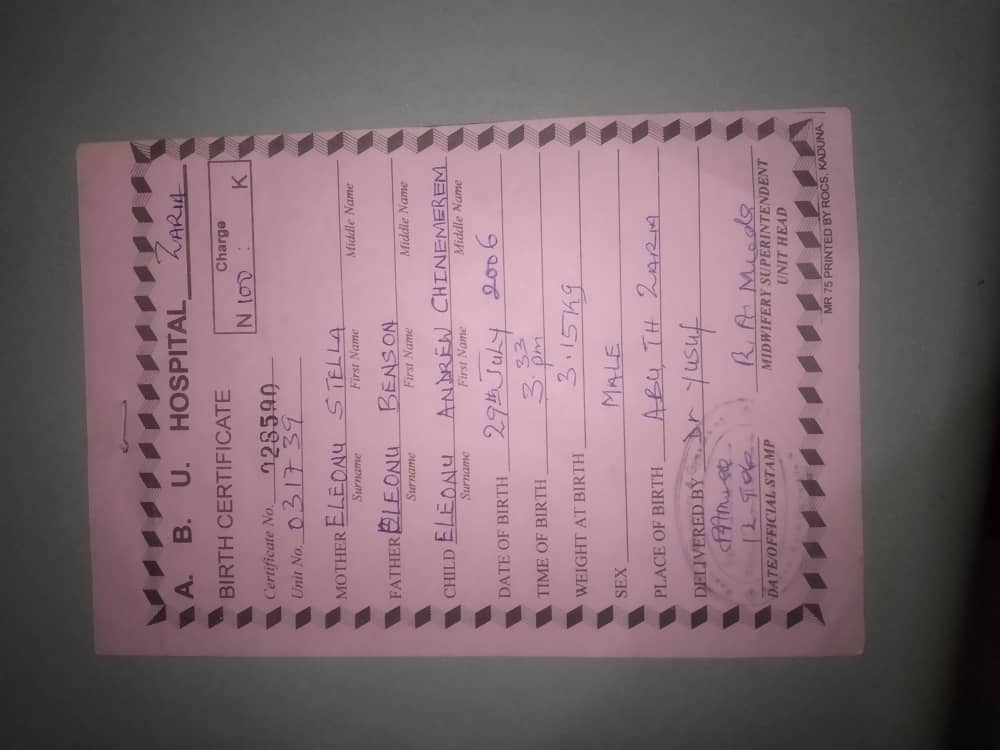 A. B. U. HOSPITAL ZARIA
BIRTH CERTIFICATE
Charge
N 100 : K
Certificate No. 028590
Unit No. 03 17 39
MOTHER ELEONU STELLA
Surname First Name Middle Name
FATHER ELEONU BENSON
Surname First Name Middle Name
CHILD ELEONU ANDREW CHINEMEREM
Surname First Name Middle Name
DATE OF BIRTH 29th JULY 2006
TIME OF BIRTH 3.33 pm
WEIGHT AT BIRTH 3.15kg
SEX MALE
PLACE OF BIRTH ABU, TH ZARIA
DELIVERED BY Dr Yusuf
DATE/OFFICIAL STAMP
MIDWIFERY SUPERINTENDENT
UNIT HEAD
MR 75 PRINTED BY ROCS, KADUNA